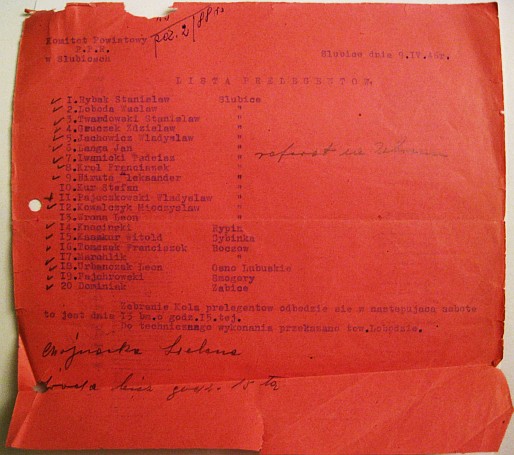 poz. 2/88
Komitet Powiatowy
P.P.R.
w Slubicach
Slubice dnia 9.IV.46r.
LISTA PRELEGENTOW.
1.Rybak Stanislaw Slubice
2.Loboda Waslaw "
3.Twardowski Stanislaw "
4.Gruczek Zdzislaw "
5.Jachowicz Wladyslaw "
6.Langa Jan "
7.Iwanicki Tadeisz "
8.Krol Franciszek "
9.Hizuta Aleksander "
10.Kur Stefan "
11.Pajaczkowski Wladyslaw "
12.Kowalczyk Mieczyslaw "
13.Wrona Leon "
14.Knoginski Rypin
15.Kanakur Witold Cybinka
16.Tomczak Franciszek Boczow
17.Marchlik "
18.Urbanczak Leon Osno Lubuskie
19.Pajchrowski Smogary
20 Dominiak Zabice
Zebranie Kola prelegentow odbedzie sie w nastepujaca sobote
to jest dnia 13 bm.o godz.15.tej.
Do technicznego wykonania przekazano tow.Lobodzie.
godz. 15 ta